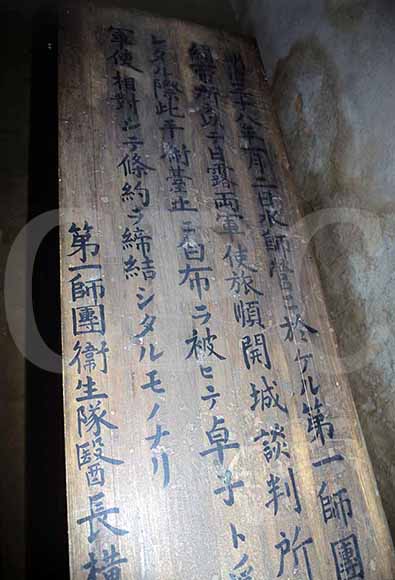 三十八年一月二日水師營ニ於ケル第一師團
所乃チ日露両軍使旅順開城談判所
レタル際此手術臺上ニ白布ヲ被ヒテ卓子ト
軍使相對シテ條約ヲ締結シタルモノナリ
第一師團衞生隊醫長横